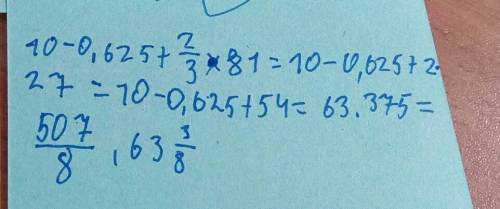 10-0,625+2/3×81=10-0,625+2·
27=10-0,625+54=63.375=
507/8, 63 3/8